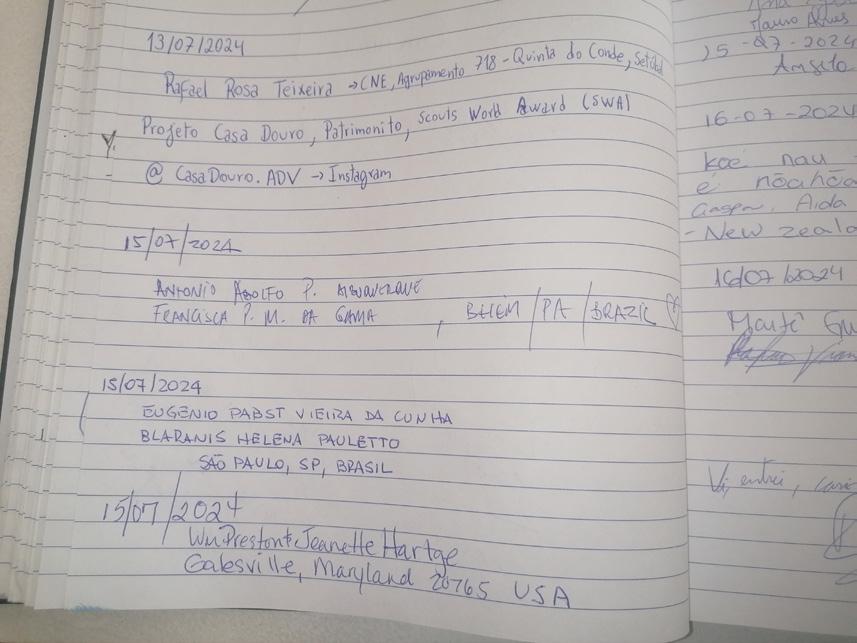 13/07/2024
Rafael Rosa Teixeira → CNE, Agrupamento 718 - Quinta do Conde, Setúbal
Projeto Casa Douro, Patrimonito, Scouts World Award (SWA)
@ CasaDouro.ADV → Instagram
15/07/2024
ANTONIO ADOLFO P. ALBUQUERQUE
FRANCISCA P. M. DA GAMA, BELÉM/PA/BRAZIL
15/07/2024
EUGÊNIO PABST VIEIRA DA CUNHA
BLARANIS HELENA PAULETTO
SÃO PAULO, SP, BRASIL
15/07/2024
Wm Preston + Jeanette Hartge
Galesville, Maryland 20765 USA
Mauro Alves
15-07-2024
Angelo
16-07-2024
koe nau
é nōahōa
Aida
- New zeala
16/07/2024
Vi, entrei,